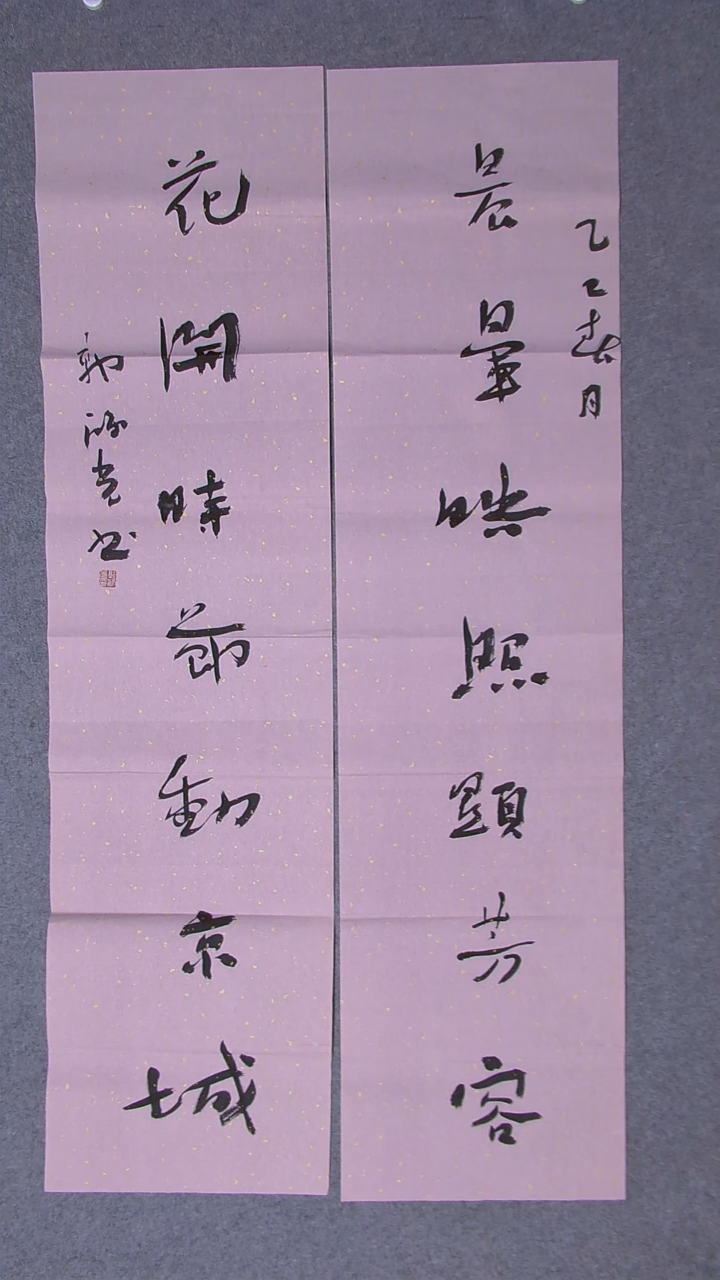 乙巳春月
晨暈映照顯芳容
花開時節動京城
郭
書